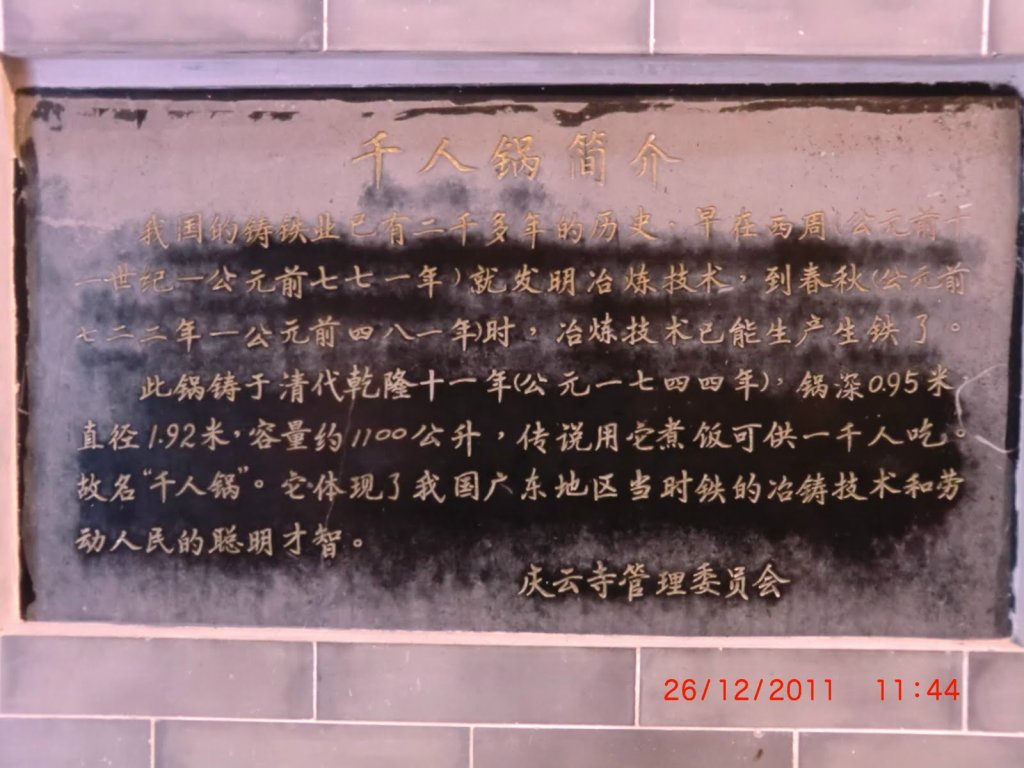 千人锅简介
我国的铸铁业已有二千多年的历史，早在西周(公元前十
一世纪—公元前七七一年)就发明冶炼技术，到春秋(公元前
七二二年—公元前四八一年)时，冶炼技术已能生产生铁了。
此锅铸于清代乾隆十一年(公元一七四四年)，锅深0.95米
直径1.92米，容量约1100公升，传说用它煮饭可供一千人吃。
故名“千人锅”。它体现了我国广东地区当时铁的冶铸技术和劳
动人民的聪明才智。
庆云寺管理委员会
26/12/2011 11:44